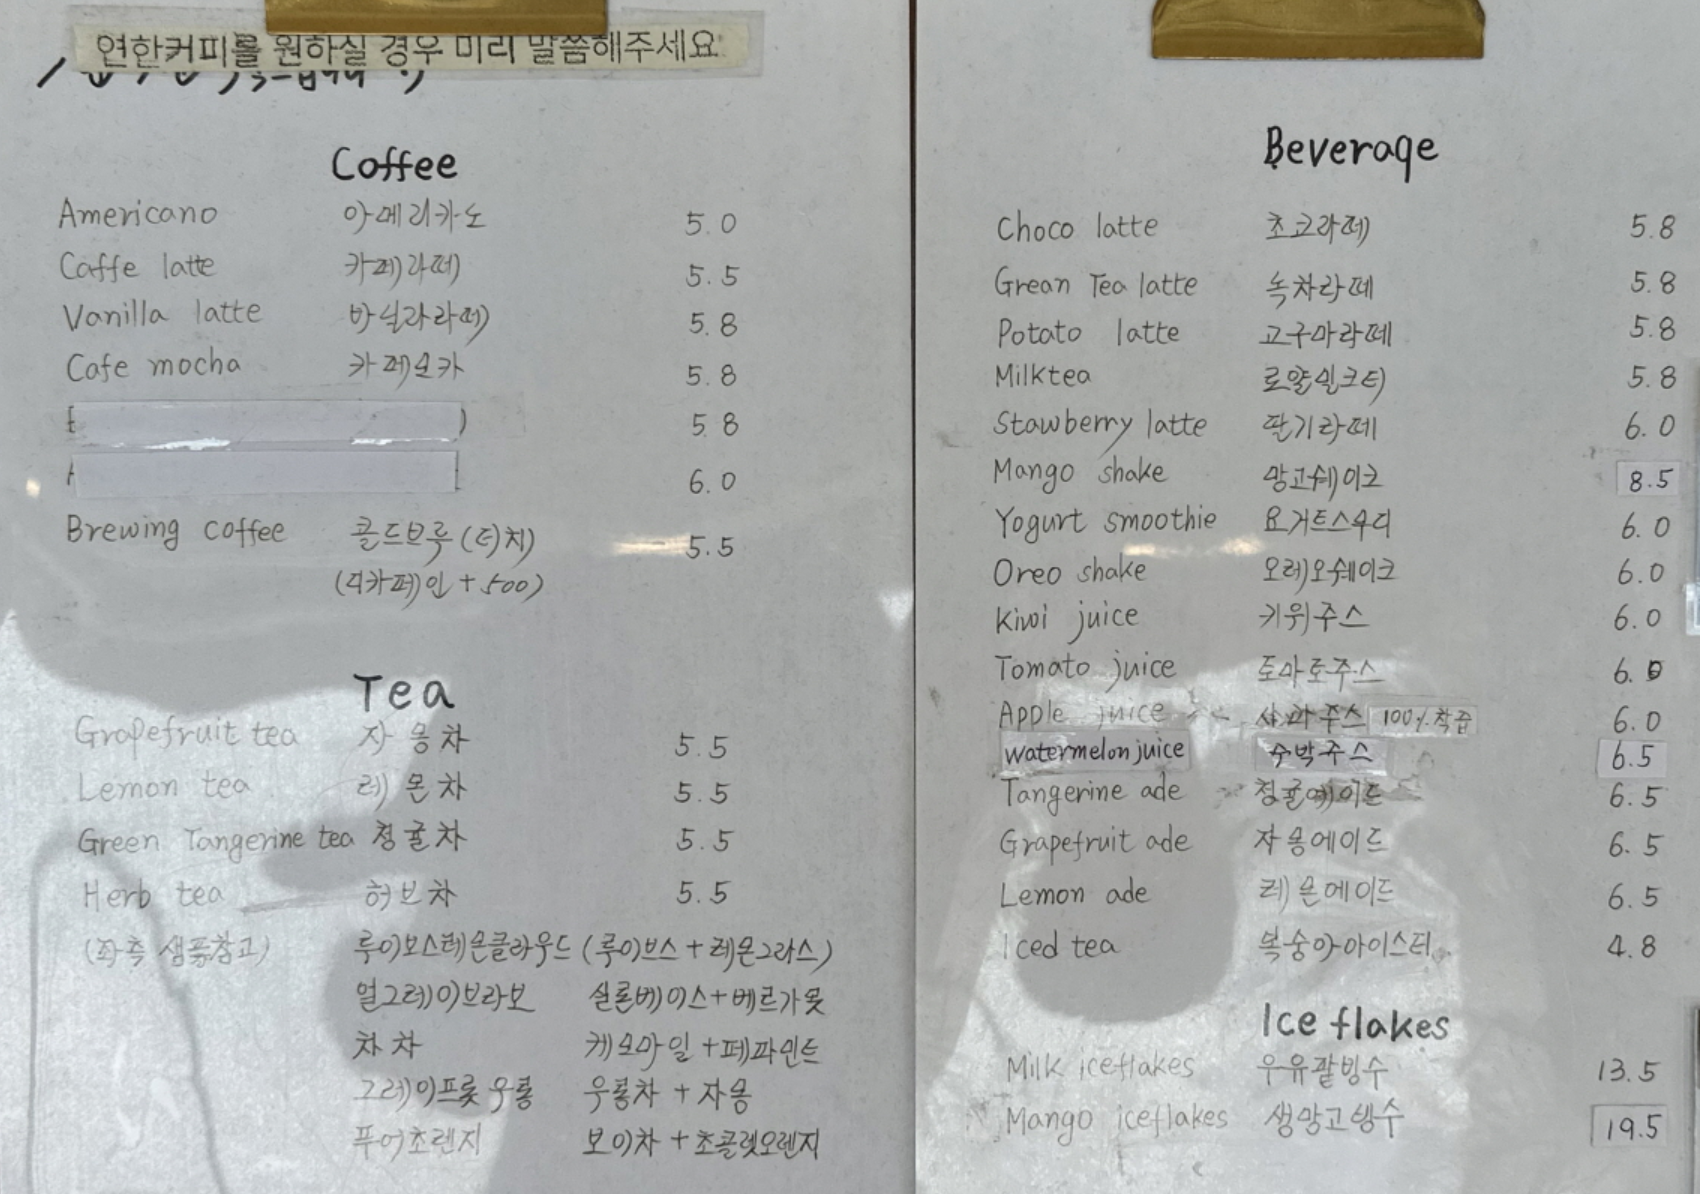 연한커피를 원하실 경우 미리 말씀해주세요
Coffee
Americano 아메리카노 5.0
Caffe latte 카페라떼 5.5
Vanilla latte 바닐라라떼 5.8
Cafe mocha 카페모카 5.8
5.8
6.0
Brewing coffee 콜드브루(더치) 5.5
(디카페인 + 500)
Tea
Grapefruit tea 자몽차 5.5
Lemon tea 레몬차 5.5
Green Tangerine tea 청귤차 5.5
Herb tea 허브차 5.5
(좌측 샘플참고) 루이보스레몬클라우드 (루이보스 + 레몬그라스)
얼그레이브라보 실론베이스+베르가못
차차 케모마일 +페파민트
그레이프룻 우롱 우롱차 + 자몽
푸어초렌지 보이차 + 초콜렛오렌지
Beverage
Choco latte 초코라떼 5.8
Grean Tea latte 녹차라떼 5.8
Potato latte 고구마라떼 5.8
Milktea 로얄밀크티 5.8
Stawberry latte 딸기라떼 6.0
Mango shake 망고쉐이크 8.5
Yogurt smoothie 요거트스무디 6.0
Oreo shake 오레오쉐이크 6.0
Kiwi juice 키위주스 6.0
Tomato juice 토마토주스 6.0
Apple juice 사과주스 100% 착즙 6.0
watermelon juice 수박주스 6.5
Tangerine ade 청귤에이드 6.5
Grapefruit ade 자몽에이드 6.5
Lemon ade 레몬에이드 6.5
Iced tea 복숭아아이스티 4.8
Ice flakes
Milk iceflakes 우유팥빙수 13.5
Mango iceflakes 생망고빙수 19.5